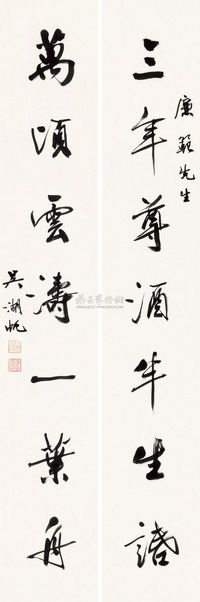 廉範先生
三年尊酒半生
萬頃雲濤一葉舟
吳湖帆